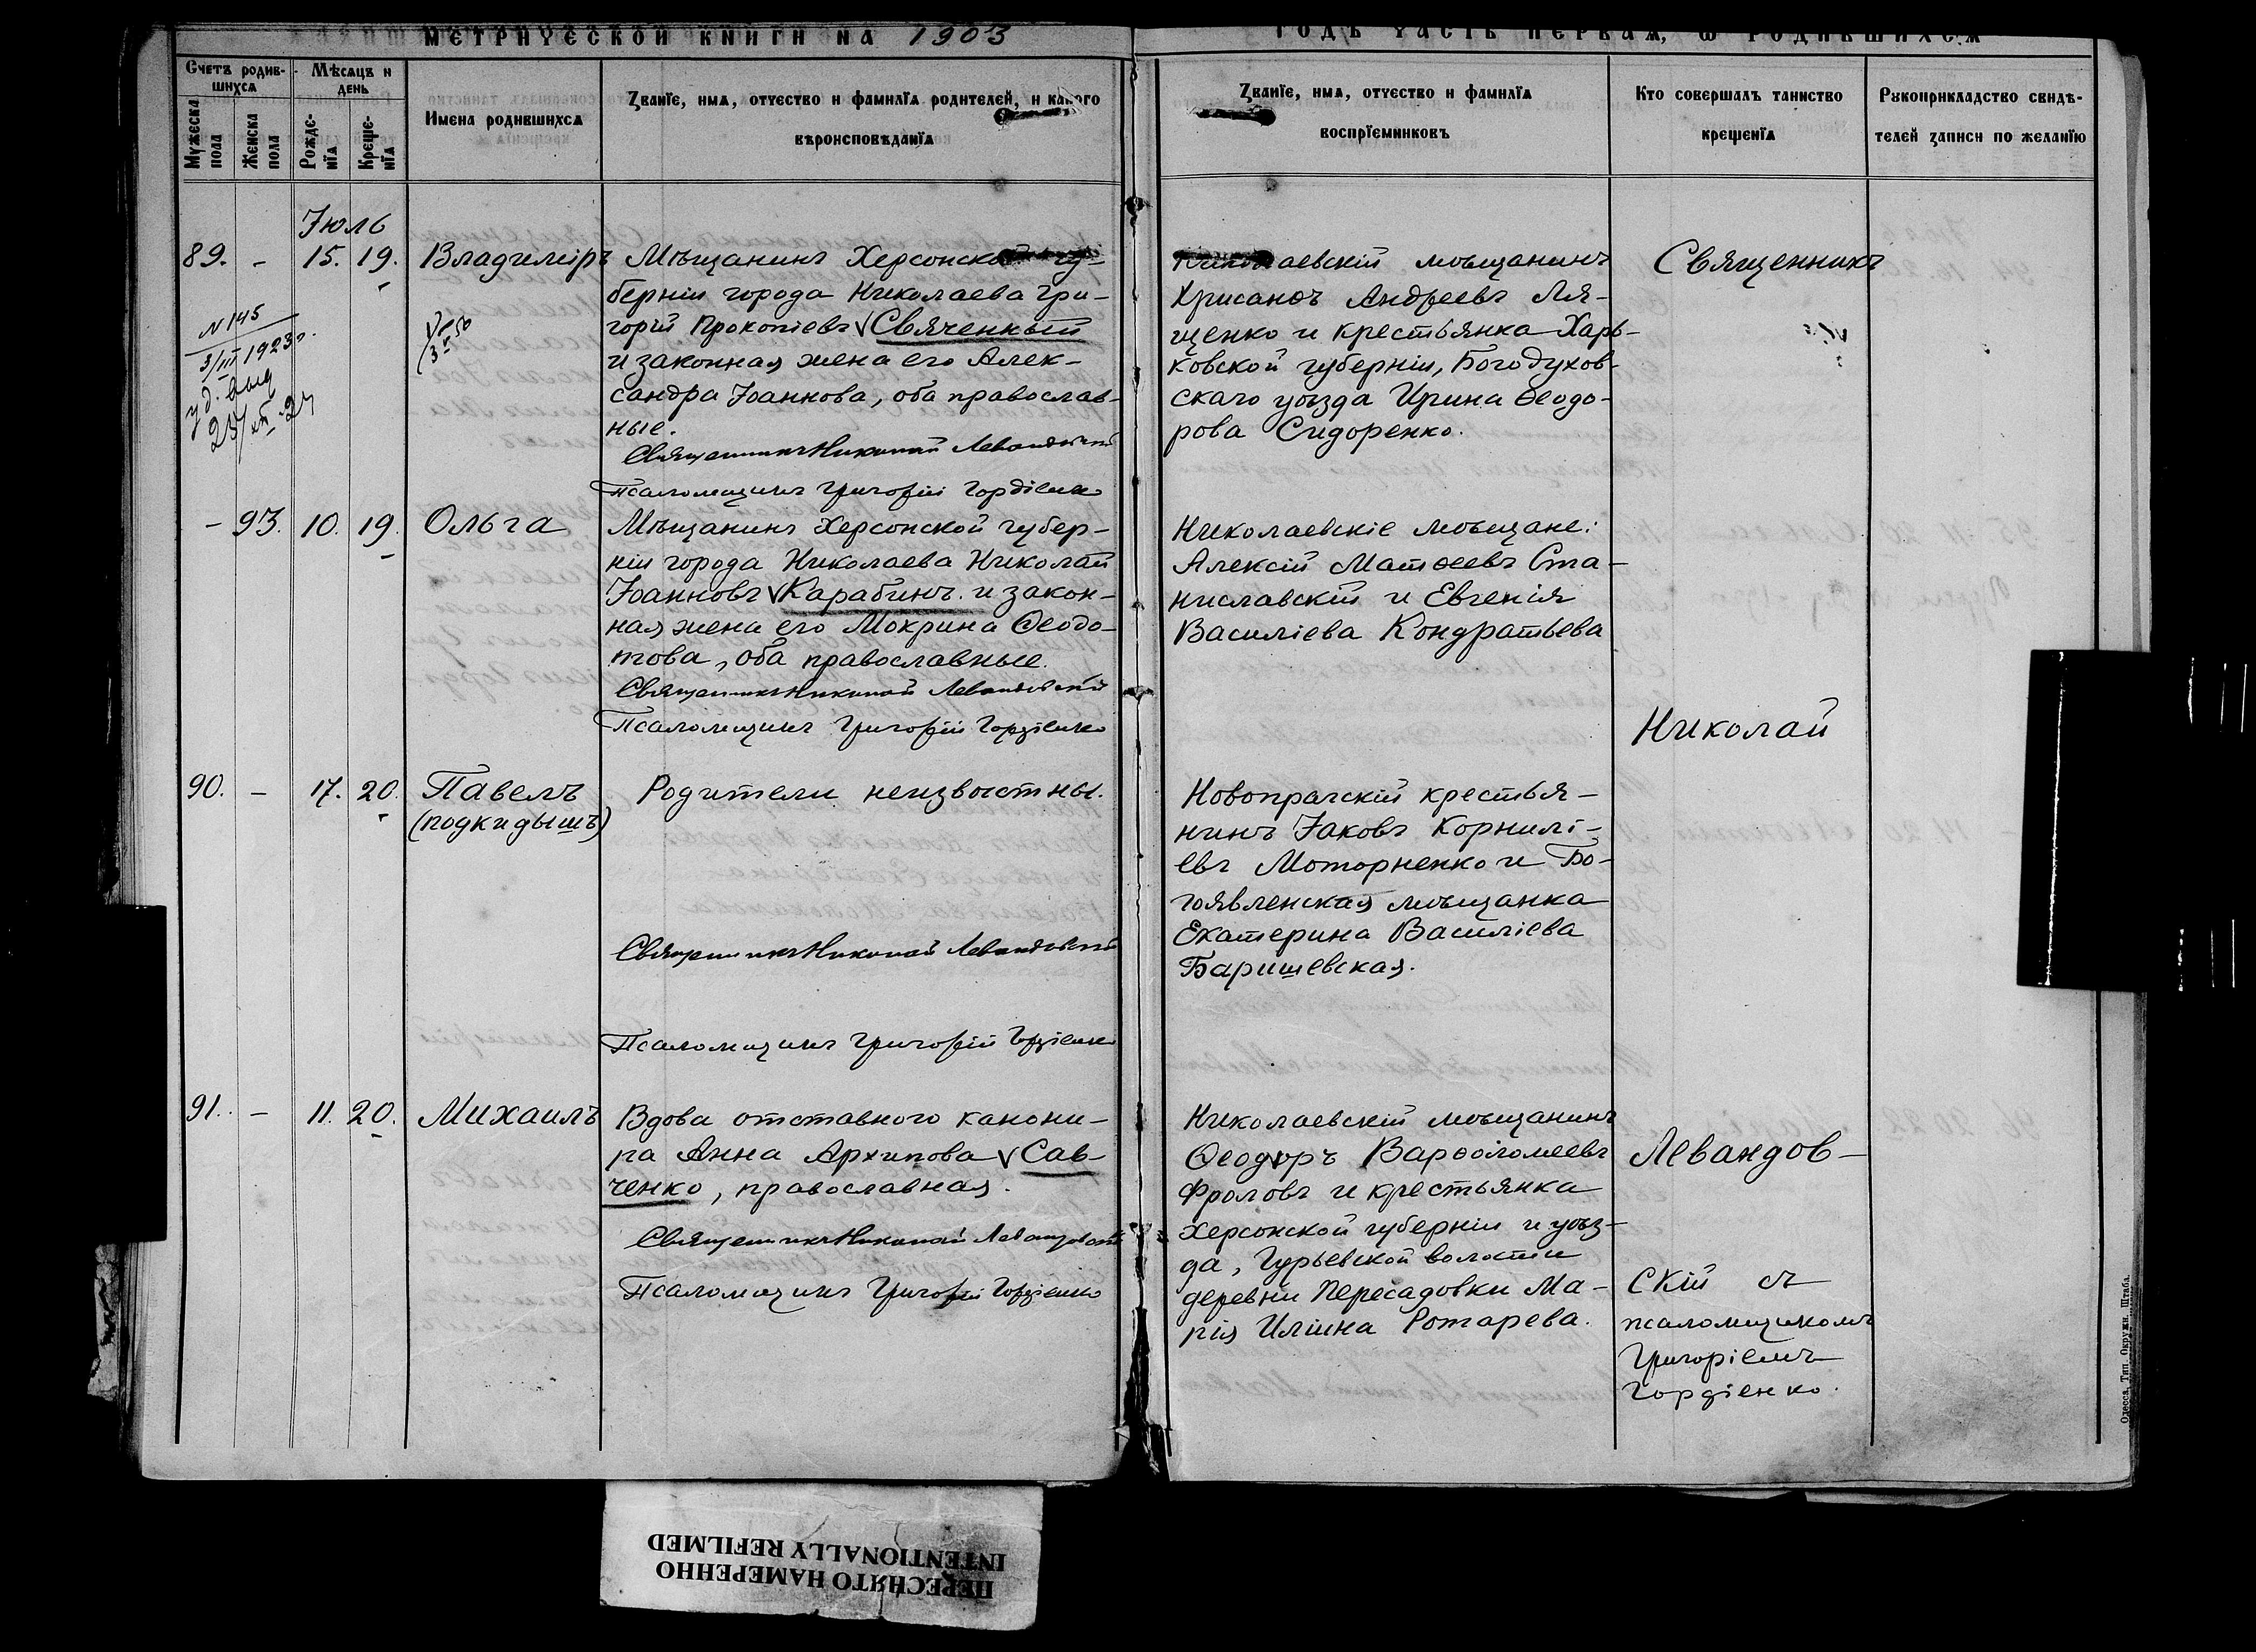 МЕТРИЧЕСКОЙ КНИГИ НА 1903
ГОДЪ ЧАСТЬ ПЕРВАЯ, Ѡ РОДИВШИХСЯ
Счетъ родившихся
Мѣсяцъ и день
Мужеска пола
Женска пола
Рожденїя
Крещенїя
Имена родившихся
Званїе, имя, отчество и фамилїя родителей, и какого
вѣроисповѣданїя
Званїе, имя, отчество и фамилїя
воспрїемниковъ
Кто совершалъ таинство
крещенїя
Рукоприкладство свидѣ-
телей записи по желанїю
Іюль
89. - 15. 19. Владиміръ
Мѣщанинъ Херсонской гу-
берніи города Николаева Гри-
горій Прокопіевъ Свяченный
и законная жена его Алек-
сандра Іоаннова, оба православ-
ные.
Священникъ Николай Левандовскій
Псаломщикъ Григорій Гордіенко
N 145
3/III 1923 г.
Николаевскій мѣщанинъ
Хрисанѳъ Андреевъ Ля-
щенко и крестьянка Харь-
ковской губерніи, Богодухов-
скаго уѣзда Ирина Ѳеодо-
рова Сидоренко.
- 93. 10. 19. Ольга
Мѣщанинъ Херсонской губер-
ніи города Николаева Николай
Іоанновъ Карабинъ и закон-
ная жена его Мокрина Ѳеодо-
това, оба православные.
Священникъ Николай Левандовскій
Псаломщикъ Григорій Гордіенко
Николаевскіе мѣщане:
Алексій Матѳеевъ Ста-
ниславскій и Евгенія
Василіева Кондратьева
90. - 17. 20. Павелъ
(подкидышъ)
Родители неизвѣстны.
Священникъ Николай Левандовскій
Псаломщикъ Григорій Гордіенко
Новопрагскій крестья-
нинъ Іаковъ Корнилі-
евъ Моторненко и Бо-
гоявленская мѣщанка
Екатерина Василіева
Баришевская.
91. - 11. 20. Михаилъ
Вдова отставного канони-
ра Анна Архипова Сав-
ченко, православная.
Священникъ Николай Левандовскій
Псаломщикъ Григорій Гордіенко
Николаевскій мѣщанинъ
Ѳеодоръ Варѳоломеевъ
Фроловъ и крестьянка
Херсонской губерніи и уѣз-
да, Гурьевской волости
деревни Пересадовки Ма-
рія Иліина Ротарева.
Священникъ
Николай
Левандов-
скій съ
псаломщикомъ
Григоріемъ
Гордіенко.
Одесса, Тип. Окружн. Штаба.
ПЕРЕСНЯТО НАМЕРЕННО
INTENTIONALLY REFILMED